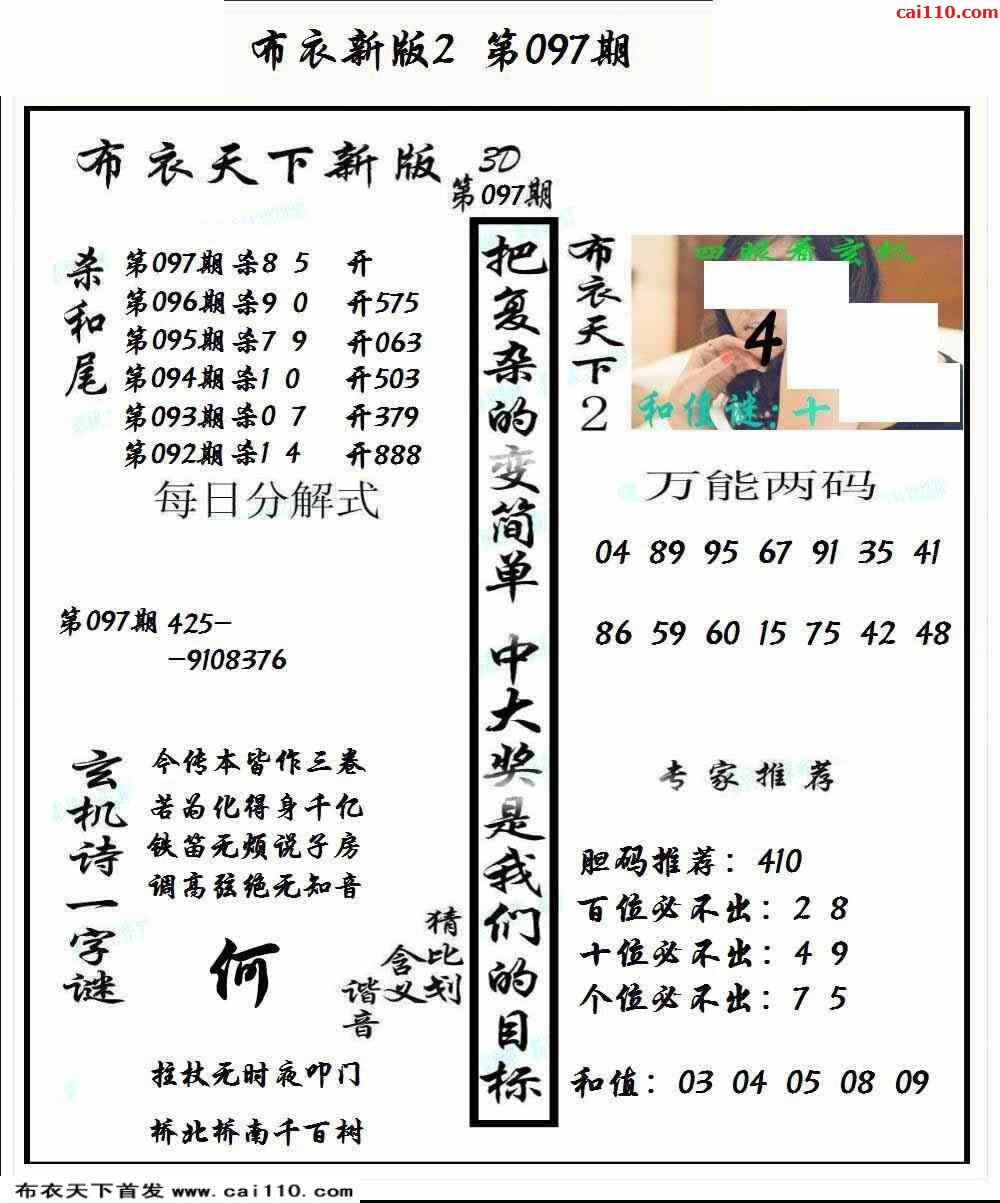 cai110.com
布衣新版2 第097期
布衣天下新版
3D
第097期
杀和尾
第097期 杀8 5 开
第096期 杀9 0 开575
第095期 杀7 9 开063
第094期 杀1 0 开503
第093期 杀0 7 开379
第092期 杀1 4 开888
每日分解式
第097期 425-
-9108376
玄机诗一字谜
今传本皆作三卷
若为化得身千亿
铁笛无烦说子房
调高弦绝无知音
何
猜比划
含义
谐音
拄杖无时夜叩门
桥北桥南千百树
把复杂的变简单 中大奖是我们的目标
布衣天下2
四眼看玄机
4
和值谜:十
万能两码
04 89 95 67 91 35 41
86 59 60 15 75 42 48
专家推荐
胆码推荐：410
百位必不出：2 8
十位必不出：4 9
个位必不出：7 5
和值：03 04 05 08 09
布衣天下首发 www.cai110.com